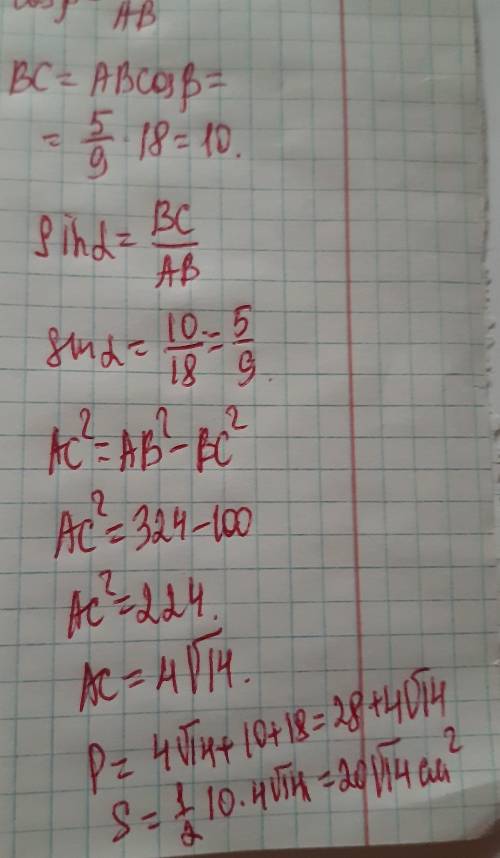 AB
BC = AB cos β =
= 5/9 · 18 = 10.
sin α = BC/AB
sin α = 10/18 = 5/9.
AC² = AB² − BC²
AC² = 324 − 100
AC² = 224.
AC = 4√14.
P = 4√14 + 10 + 18 = 28 + 4√14
S = 1/2 10 · 4√14 = 20√14 см²